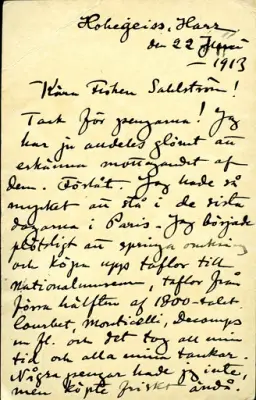 Hohegeiss, Harz
den 22
1913
Kära Fröken Sahlström!
Tack för pengarna! Jag
har ju alldeles glömt att
erkänna mottagandet af
dem. Förlåt. Jag hade så
mycket att stå i de sista
dagarna i Paris. Jag började
plötsligt att springa omkring
och köpa upp taflor till
Nationalmuseum, taflor från
förra hälften af 1800-talet
Courbet, Monticelli, Decamps
m fl. och det tog all min
tid och alla mina tankar.
Några pengar hade jag inte,
men köpte friskt ändå.